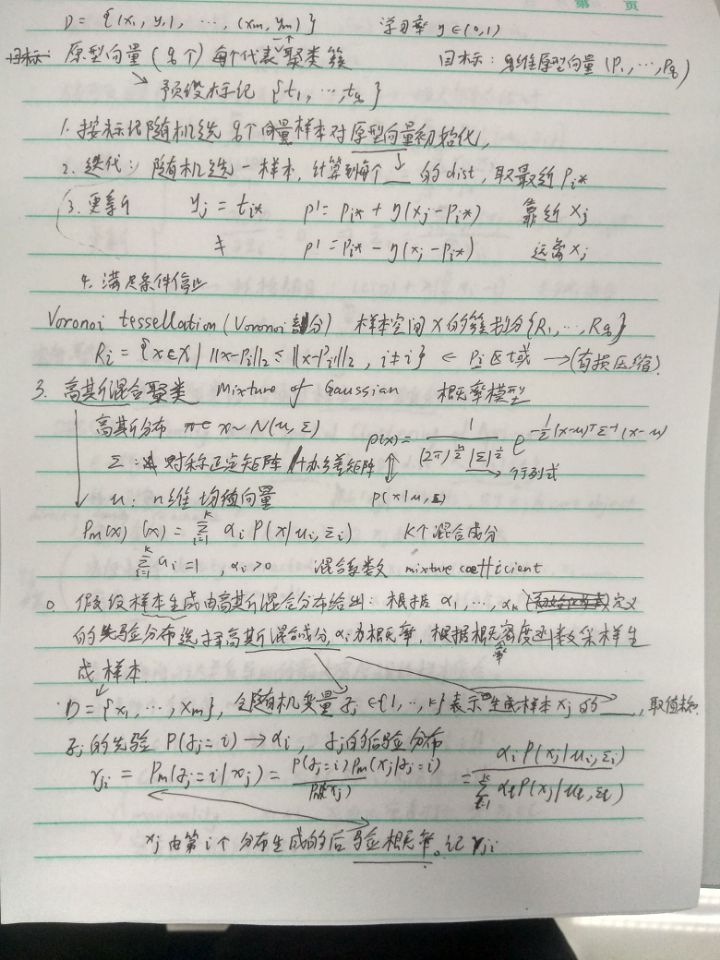 第 页
D = {(x₁, y₁), ⋯, (xₘ, yₘ)} 学习率 η∈(0,1)
目标: 原型向量 (q个) 每个代表聚类簇 目标: n维原型向量 (P₁, ⋯, Pq)
↘ 预设标记 {t₁, ⋯, tq}
1. 按标记随机选 q个向量样本对原型向量初始化,
2. 迭代: 随机选一样本, 计算到每个 __ 的dist, 取最近 Pi*
3. 更新 yj = ti* p' = pi* + η(xj - pi*) 靠近 xj
≠ p' = pi* - η(xj - pi*) 远离 xj
4. 满足条件停止
Voronoi tessellation (Voronoi 剖分) 样本空间 X 的簇划分 {R₁, ⋯, Rq}
Ri = {x∈X | ||x-Pi||₂ ≤ ||x-Pi'||₂, i'≠i} ← Pi 区域 → (有损压缩).
3. 高斯混合聚类 Mixture of Gaussian 概率模型
高斯分布 x ~ N(u, Σ) p(x) = 1 / ((2π)^{n/2} |Σ|^{1/2}) e^{-½(x-u)ᵀΣ⁻¹(x-u)}
Σ: 对称正定矩阵 协方差矩阵 ↕ → 行列式
u: n维均值向量 p(x|u, Σ)
Pm(x) (x) = Σ_{i=1}^{k} αi P(x|ui, Σi) K个混合成分
Σ_{i=1}^{k} αi = 1, αi > 0 混合系数 mixture coefficient
假设样本生成由高斯混合分布给出: 根据 α₁, ⋯, αk 定义
的先验分布选择高斯混合成分, αi 为概率, 根据概率密度函数采样生
成样本
D = {x₁, ⋯, xm}, 令随机变量 zj ∈{1, ⋯, k} 表示生成样本 xj 的 __, 取值未知
zj 的先验 P(zj = i) → αi, zj 的后验分布
γji = Pm(zj = i | xj) = P(zj = i) Pm(xj | zj = i) / Pm(xj) = αi P(xj | ui, Σi) / Σ_{l=1}^{k} αl P(xj | ul, Σl)
xj 由第 i 个分布生成的后验概率。记 γji